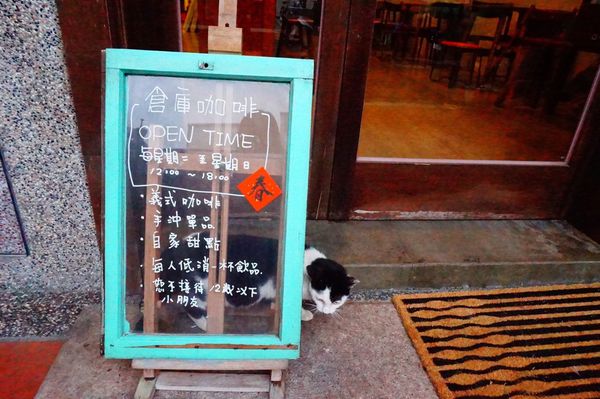 倉庫咖啡
OPEN TIME
每星期二至星期日
12:00~18:00
春
・義式咖啡
・手沖單品
・自家甜點
・每人低消一杯飲品.
・恕不接待12歲以下
小朋友